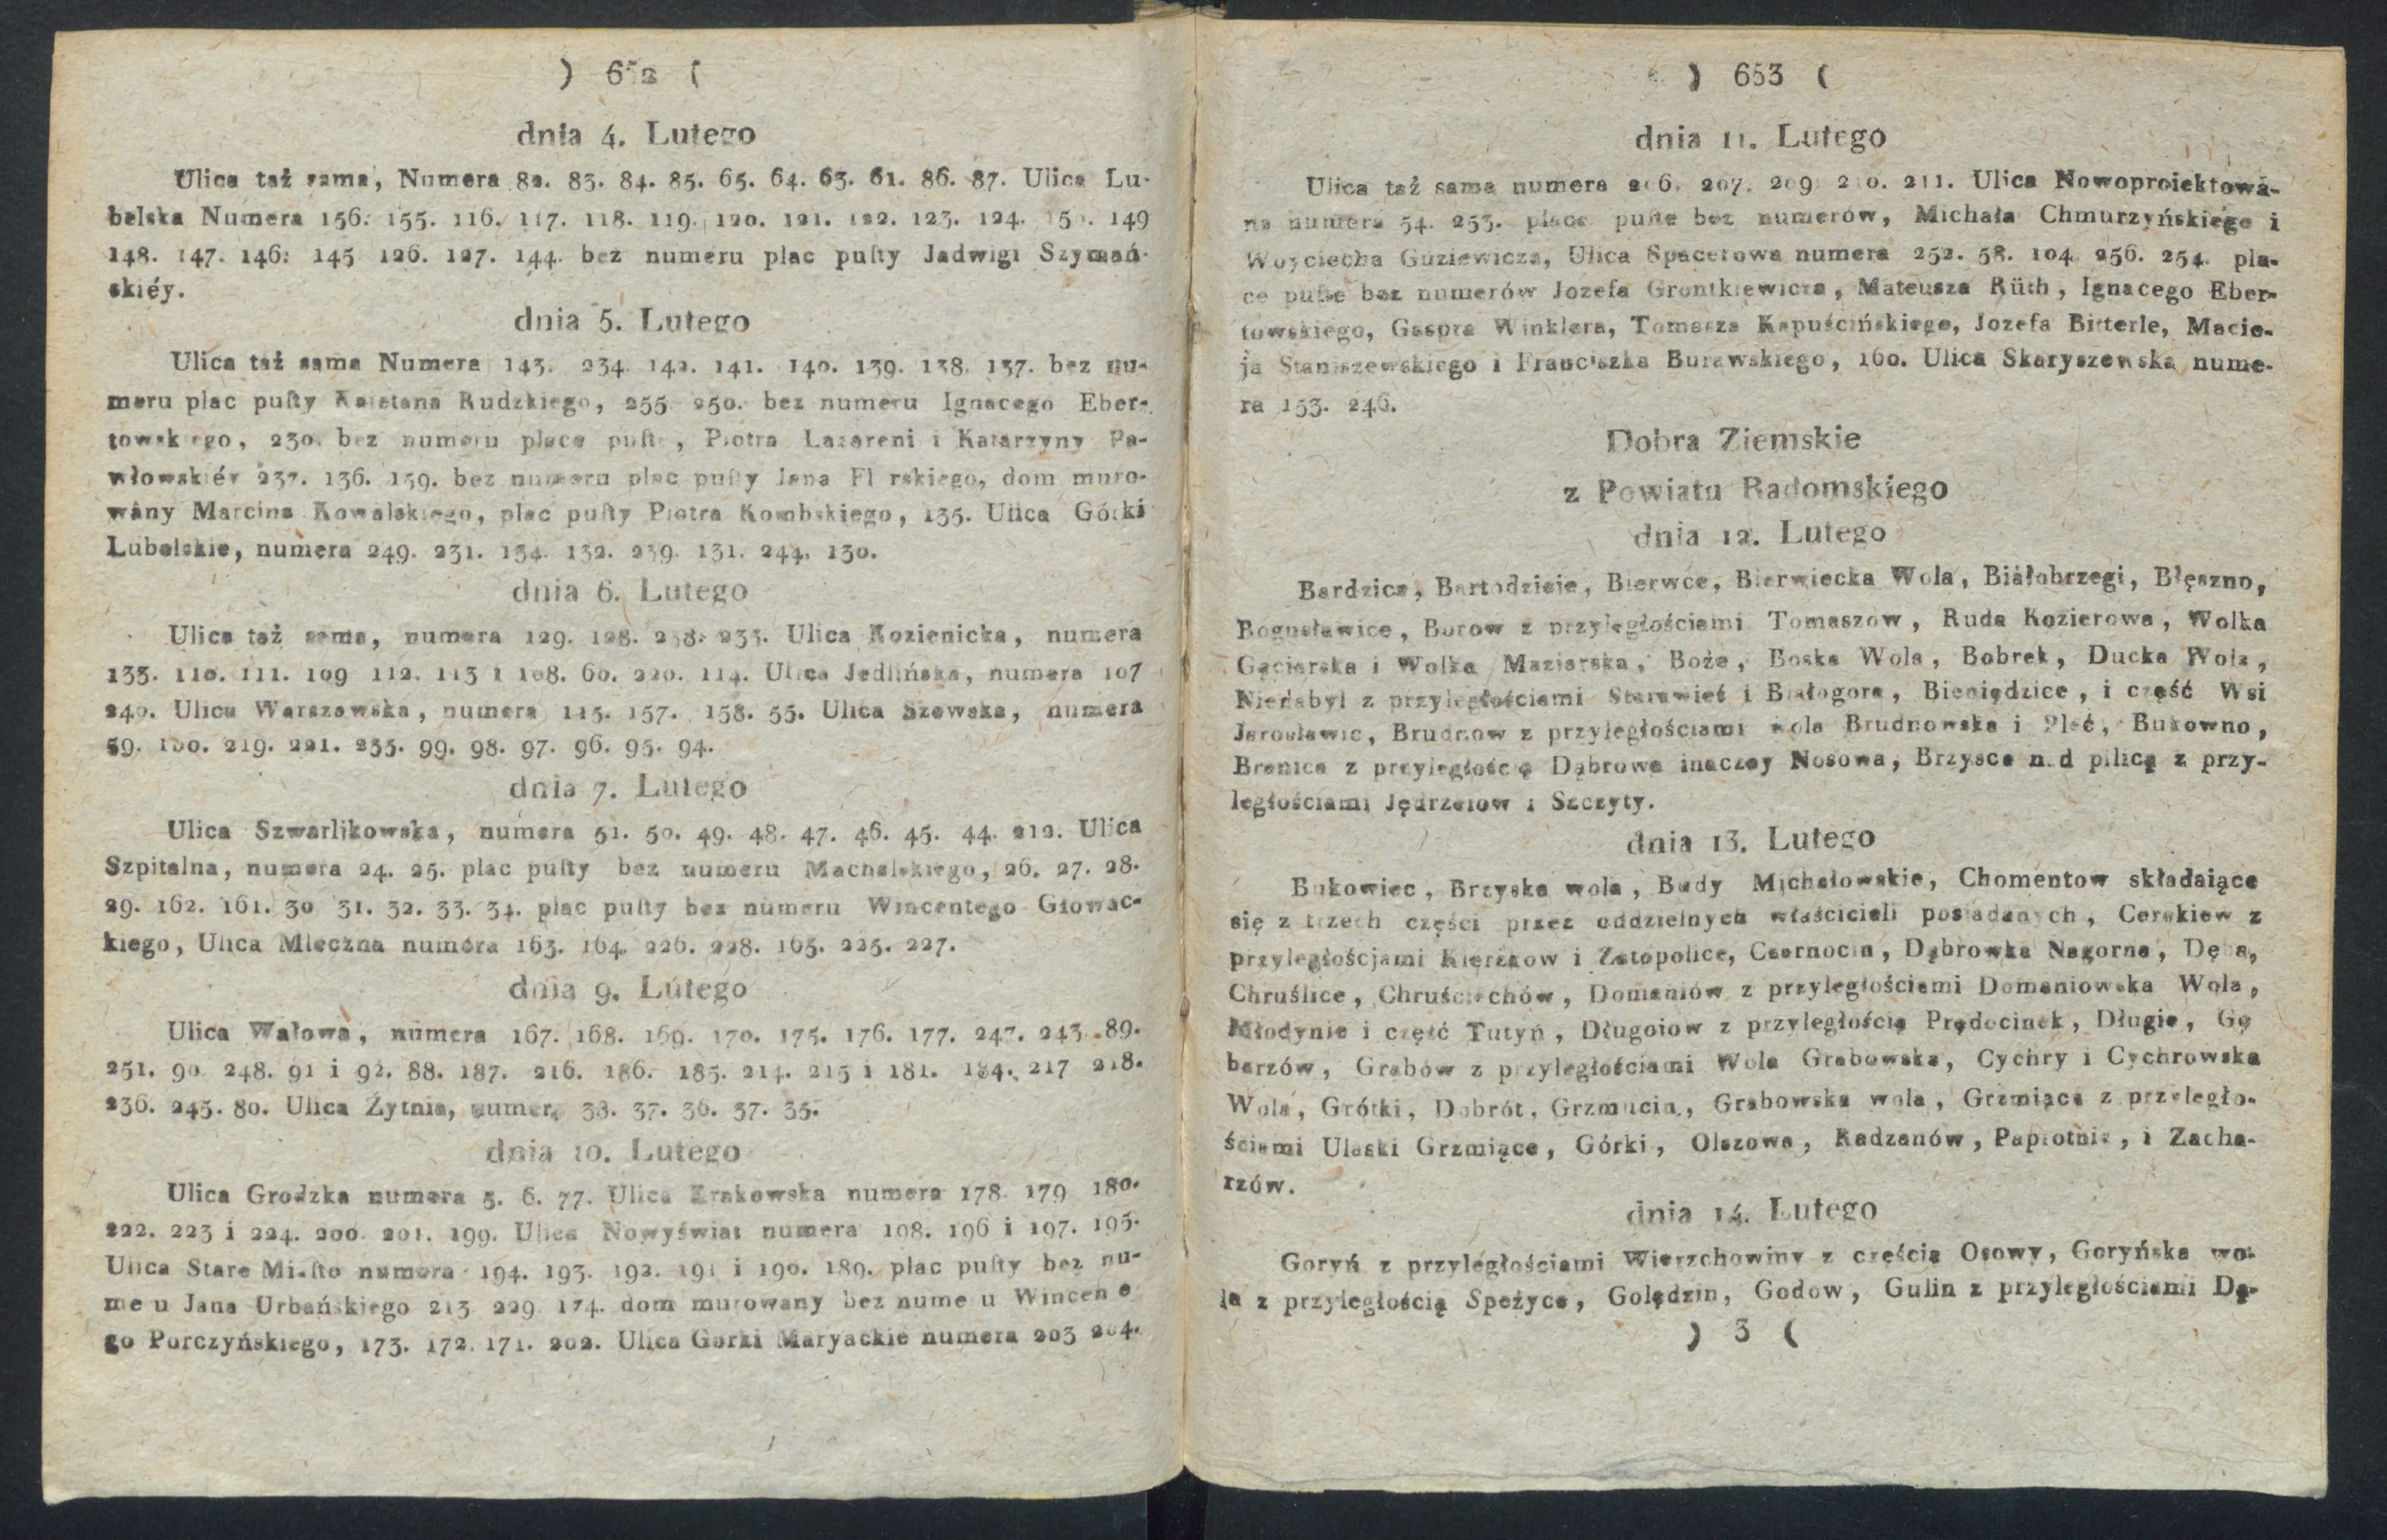 ) 652 (
dnia 4. Lutego
Ulica taż sama, Numera 82. 83. 84. 85. 65. 64. 63. 61. 86. 87. Ulica Lu-
belska Numera 156. 155. 116. 117. 118. 119. 120. 121. 122. 123. 124. 149
148. 147. 146. 145 126. 127. 144. bez numeru plac puſty Jadwigi Szymań-
skiéy.
dnia 5. Lutego
Ulica taż sama Numera 143. 234. 142. 141. 140. 139. 138. 137. bez nu-
meru plac puſty Kaietana Rudzkiego, 255 250. bez numeru Ignacego Eber-
towskiego, 230. bez numeru place puſte, Piotra Lazareni i Katarzyny Pa-
włowskiéy 237. 136. 159. bez numeru plac puſty Jana dom muro-
wany Marcina Kowalskiego, plac puſty Piotra Kombskiego, 135. Ulica Górki
Lubelskie, numera 249. 231. 134. 132. 239. 131. 244. 130.
dnia 6. Lutego
Ulica taż sama, numera 129. 128. 238. 233. Ulica Kozienicka, numera
133. 110. 111. 109 112. 113 i 108. 60. 220. 114. Ulica Jedlińska, numera 107
240. Ulica Warszawska, numera 115. 157. 158. 55. Ulica Szewska, numera
59. 100. 219. 221. 235. 99. 98. 97. 96. 95. 94.
dnia 7. Lutego
Ulica Szwarlikowska, numera 51. 50. 49. 48. 47. 46. 45. 44. 212. Ulica
Szpitalna, numera 24. 25. plac puſty bez numeru Machalskiego, 26. 27. 28.
29. 162. 161. 30 31. 32. 33. 34. plac puſty bez numeru Wincentego Głowac-
kiego, Ulica Mleczna numera 163. 164. 226. 228. 165. 225. 227.
dnia 9. Lutego
Ulica Wałowa, numera 167. 168. 169. 170. 175. 176. 177. 247. 243. 89.
251. 90. 248. 91 i 92. 88. 187. 216. 186. 185. 214. 215 i 181. 184. 217 218.
236. 245. 80. Ulica Żytnia, numera 38. 37. 36. 57. 35.
dnia 10. Lutego
Ulica Grodzka numera 5. 6. 77. Ulica Krakowska numera 178. 179 180.
222. 223 i 224. 200. 201. 199. Ulica Nowyświat numera 198. 196 i 197. 195.
Ulica Stare Miaſto numera 194. 193. 192. 191 i 190. 189. plac puſty bez nu-
me u Jana Urbańskiego 213 229 174. dom murowany bez nume u Wincen e
go Porczyńskiego, 173. 172. 171. 202. Ulica Gorki Maryackie numera 203 204.
) 653 (
dnia 11. Lutego
Ulica taż sama numera 206. 207. 209. 210. 211. Ulica Nowoproiektowa-
na numera 54. 253. place puſte bez numerów, Michała Chmurzyńskiego i
Woyciecha Guziewicza, Ulica Spacerowa numera 252. 58. 104. 256. 254. pla-
ce puſte bez numerów Jozefa Grontkiewicza, Mateusza Rüth, Ignacego Eber-
towskiego, Gaspra Winklera, Tomasza Kapuścińskiego, Jozefa Bitterle, Macie-
ja Staniszewskiego i Franciszka Burawskiego, 160. Ulica Skaryszewska nume-
ra 153. 246.
Dobra Ziemskie
z Powiatu Radomskiego
dnia 12. Lutego
Bardzice, Bartodzieie, Bierwce, Bierwiecka Wola, Białobrzegi, Błęszno,
Bogusławice, Borow z przyległościami Tomaszow, Ruda Kozierowa, Wolka
Gąciarska i Wolka Maziarska, Boże, Boska Wola, Bobrek, Ducka Wola,
Niedabyl z przyległościami Starawieś i Białogora, Bieniędzice, i część Wsi
Jarosławic, Brudnow z przyległościami wola Brudnowska i Płeć, Bukowno,
Branica z przyległością Dąbrowa inaczey Nosowa, Brzysce n.d pilicą z przy-
ległościami Jędrzeiow i Szczyty.
dnia 13. Lutego
Bukowiec, Brzyska wola, Budy Michałowskie, Chomentow składaiące
się z trzech części przez oddzielnych właścicieli posiadanych, Cerekiew z
przyległościami Kierzkow i Zatopolice, Czarnocin, Dąbrowka Nagorna, Dęba,
Chruślice, Chruściechów, Domaniów z przyległościami Domaniowska Wola,
Młodynie i część Tutyń, Długoiow z przyległością Prędocinek, Długie, Gę
barzów, Grabów z przyległościami Wola Grabowska, Cychry i Cychrowska
Wola, Grótki, Dobrót, Grzmucin, Grabowska wola, Grzmiąca z przyległo-
ściami Ulaski Grzmiące, Górki, Olszowa, Radzanów, Paprotnia, i Zacha-
rzów.
dnia 14. Lutego
Goryń z przyległościami Wierzchowiny z częścią Osowy, Goryńska wo-
la z przyległością Speżyce, Golędzin, Godow, Gulin z przyległościami Dą-
) 3 (